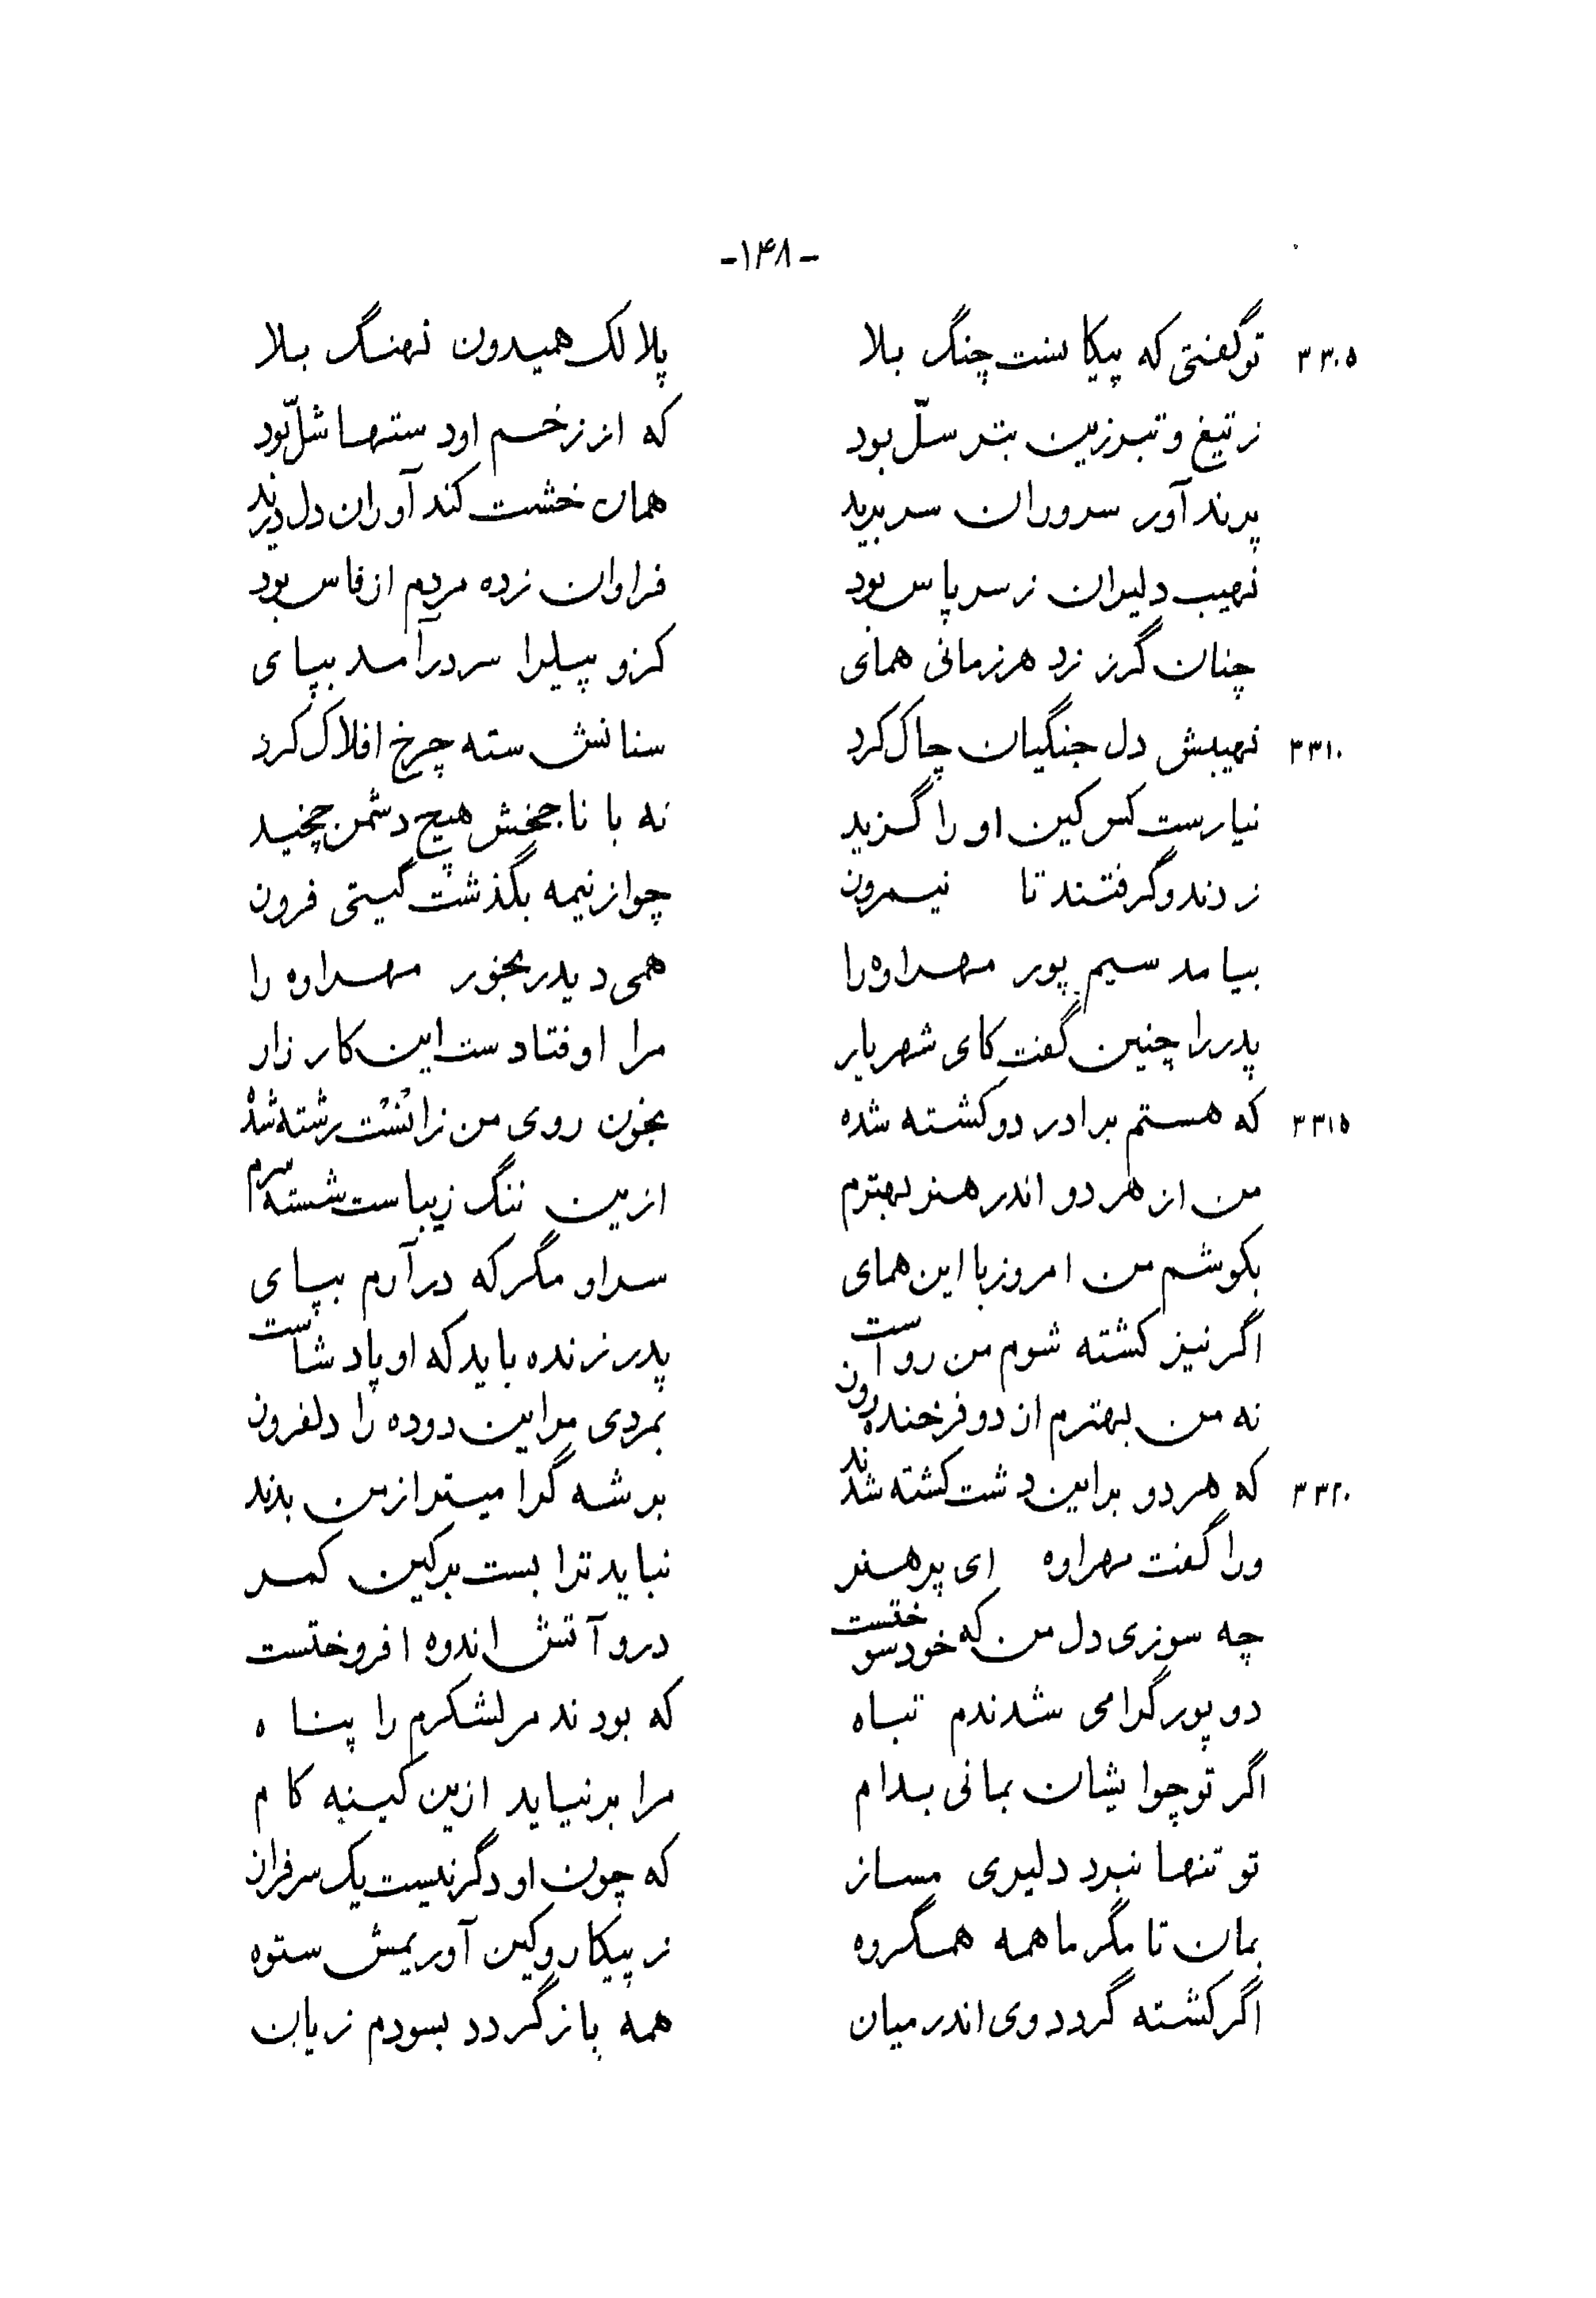 -۱۴۸-
۳۳۰۵ تو گفتی که پیکانست چنگ بلا پلالک همیدون نهنگ بلا
ز تیغ و تبرزین بتر سلّ بود که از زخم او دستها شلّ بود
پرند آور سروران سر برید همان خشت کندآوران دل درید
نهیب دلیران ز سر پاس بود فراوان زده مردم از فاس بود
چنان گرز زد هر زمانی همای کزو پیلرا سر درآمد بپای
۳۳۱۰ نهیبش دل جنگیان چاک کرد سنانش سته چرخ افلاک کرد
نیارست کس کین او را گزید نه با ناچخش هیچ دشمن چخید
زدند و گرفتند تا نیمروز چو از نیمه بگذشت گیتی فروز
بیامد سیم پور مهراوه را همی دید رنجور مهراوه را
پدر را چنین گفت کای شهریار مرا اوفتادست این کارزار
۳۳۱۵ که هستم برادر دو کشته شده بخون روی من زانشست رشته شده
من از هر دو اندر هنر بهترم ازین ننگ زیباست شسته سرم
بکوشم من امروز با این همای سر او مگر که درآرم بپای
اگر نیز کشته شوم من رواست پدر زنده باید که او پادشاست
نه من بهترم از دو فرخنده روز بمردی مر این دوده را دلفروز
۳۳۲۰ که هر دو بر این دشت کشته شدند بر شه گرامیتر از من بدند
ورا گفت مهراوه ای پر هنر نباید ترا بست بر کین کمر
چه سوزی دل من که خود سوختست درو آتش اندوه افروختست
دو پور گرامی شدندم تباه که بودند مر لشکرم را پناه
اگر تو چو ایشان بمانی بدام مرا بر نیاید ازین کینه کام
تو تنها نبرد دلیری مساز که چون او دگر نیست یک سرفراز
بمان تا مگر ما همه همگروه ز پیکار و کین آوریمش ستوه
اگر کشته گردد وی اندر میان همه بازگردد بسودم زیان